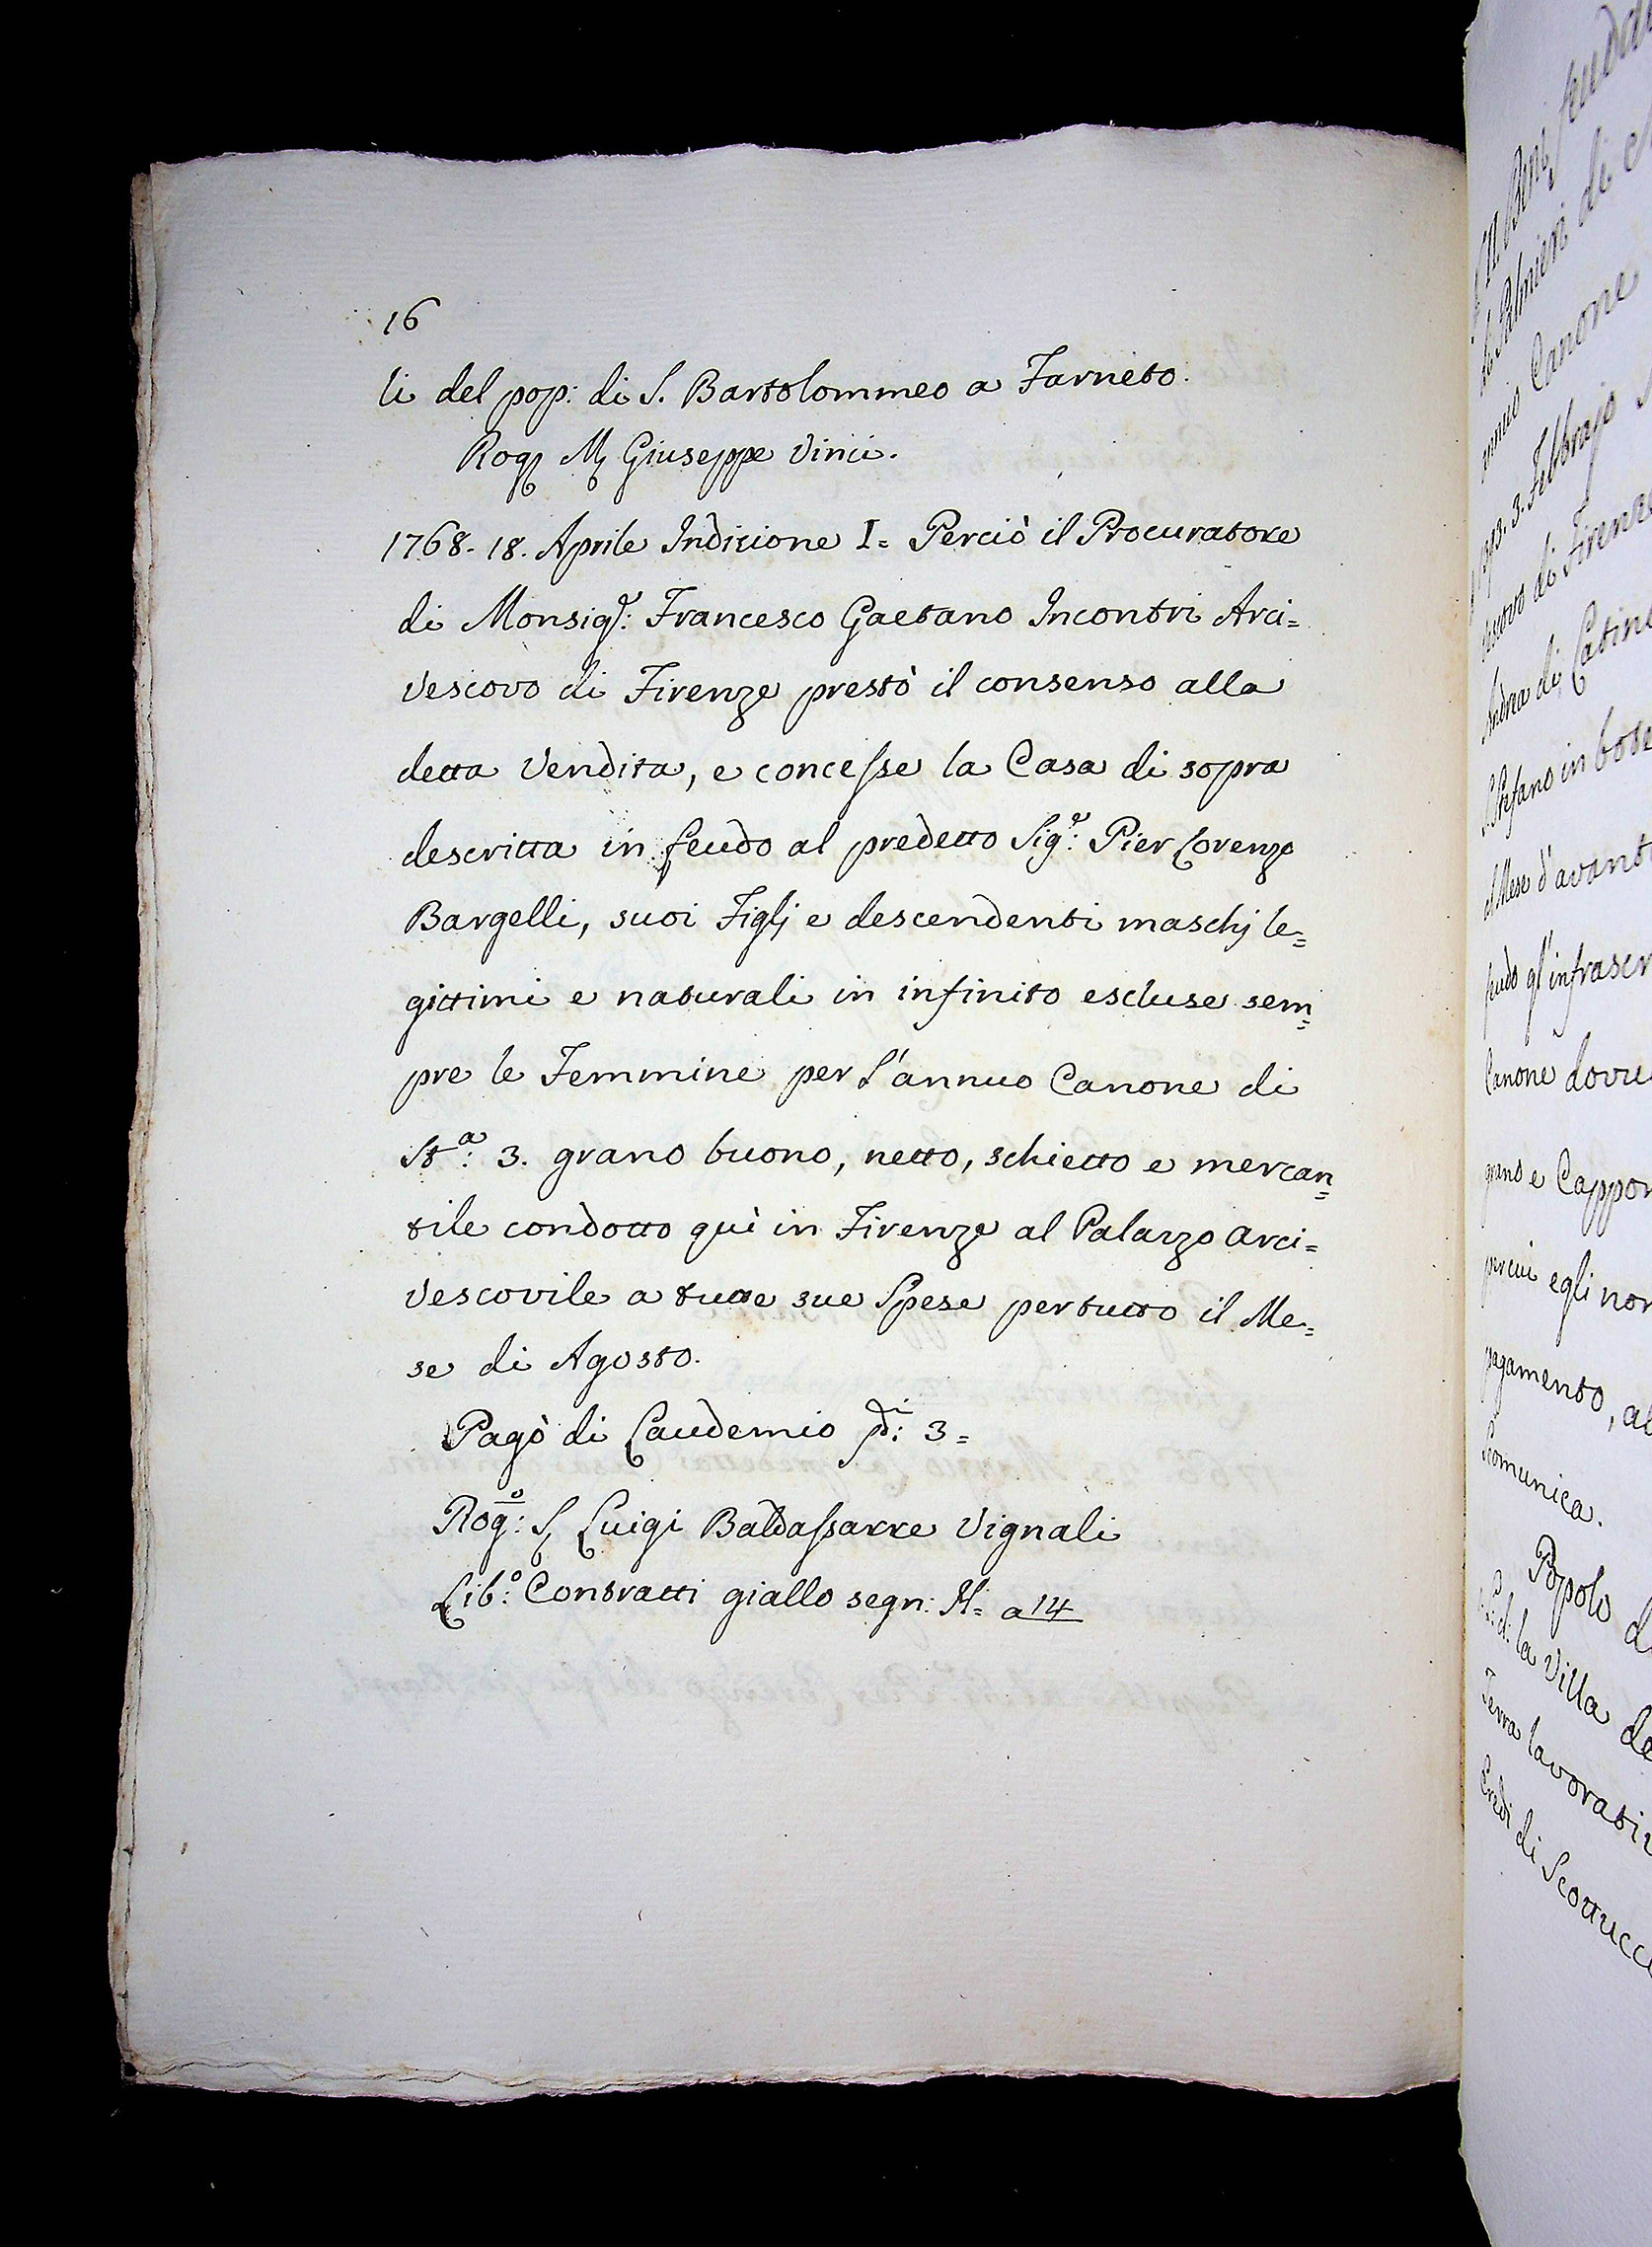 16
li del pop: di S. Bartolommeo a Farneto.
Rog. M. Giuseppe Vinci.
1768. 18. Aprile Indizione I= Perciò il Procuratore
di Monsigr: Francesco Gaetano Incontri Arci=
vescovo di Firenze prestò il consenso alla
detta Vendita, e concesse la Casa di sopra
descritta in feudo al predetto Sigr: Pier Lorenzo
Bargelli, suoi Figlj e descendenti maschj le=
gittimi e naturali in infinito escluse sem=
pre le Femmine per l'annuo Canone di
Sta: 3. grano buono, netto, schietto e mercan=
tile condotto quì in Firenze al Palazzo Arci=
vescovile a tutte sue Spese per tutto il Me=
se di Agosto.
Pagò di Laudemio di: 3=
Rogo: S. Luigi Baldassarre Vignali
Libo: Contratti giallo segn: M= a 14
annuo Canone
3. Febbrajo
di Firenze
Andrea di
S. Stefano in
Mese d'avanti
feudo gl'
Canone
grano e
per cui egli
pagamento,
Scomunica.
Popolo
la Villa
Terra
di